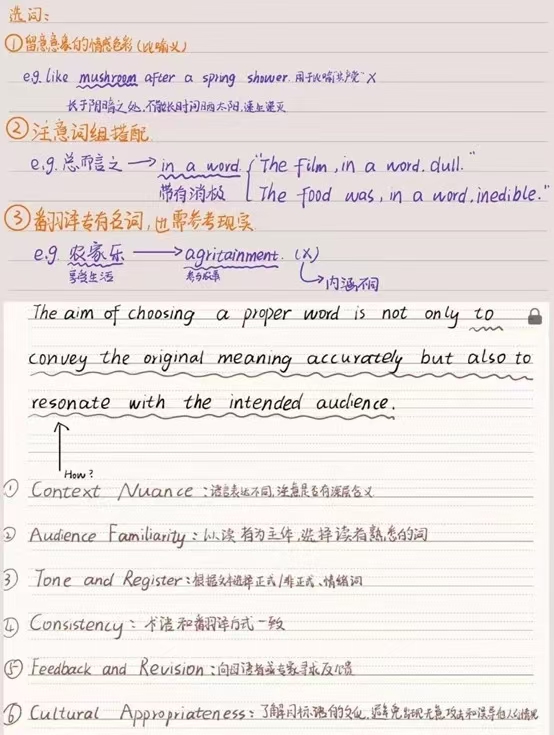 选词:
①留意意象的情感色彩(比喻义)
e.g. like mushroom after a spring shower. 用于比喻"共产党" X
长于阴暗之处,不能长时间晒太阳,速生速灭
②注意词组搭配
e.g. 总而言之 → in a word. "The film, in a word. dull."
带有消极 The food was, in a word, inedible."
③翻译专有名词,也需参考现实
e.g. 农家乐 → agritainment. (X)
享受生活
内涵不同
The aim of choosing a proper word is not only to
convey the original meaning accurately but also to
resonate with the intended audience.
How?
① Context Nuance: 语言表达不同,注意是否有深层含义
② Audience Familiarity: 以读者为主体,选择读者熟悉的词
③ Tone and Register: 根据文本选择正式/非正式、情绪词
④ Consistency: 术语和翻译方式一致
⑤ Feedback and Revision: 向母语者或专家寻求反馈
⑥ Cultural Appropriateness: 了解目标语的文化,避免出现无意攻击和误导他人的情况